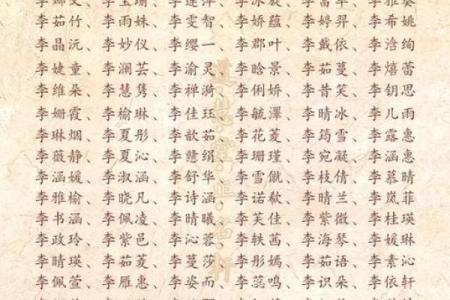 李茹竹、李雨妹、李雯智、李娇蕴、李婷羿、李希姚
李晶沅、李妙仪、李缨一、李郡叶、李戴依、李浛绚
李婕童、李澜芸、李渝灵、李晗景、李茹蔓、李熺蕾
李维朵、李慧隽、李禅漪、李俐娇、李昔笑、李钥思
李姗霞、李榆琳、李佳珏、李毓泽、李晴冰、李儿雨
李琳烟、李夏彤、李歆茹、李花菱、李筠雪、李露惠
李薇静、李夏沁、李慧绢、李珊瑾、李宛凝、李涵惠
李涵媛、李淑涵、李舒华、李雪俽、李枝倩、李慕晴
李雅榆、李晓凡、李诗涵、李诺欷、李晴兰、李岚菲
李书涵、李佩凌、李晴曦、李芙佳、李紫微、李桂瑛
李政玲、李紫邑、李沁蓉、李轶茜、李海琴、李媛琳
李晴瑛、李菱彩、李茹莎、李彤嫣、李茹语、李素沁
李佩萱、李雁惠、李姿而、李蕊鸣、李识朵、李依轩